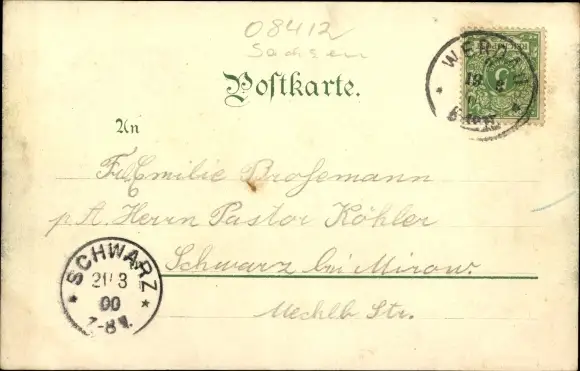 08412
Sachsen
WERDAU
19 3
5
Postkarte.
An
Frl Emilie Brosemann
p. A. Herrn Pastor Köhler
Schwarz bei Mirow.
Mecklb. Str.
SCHWARZ
21/3
00
7-8 V.